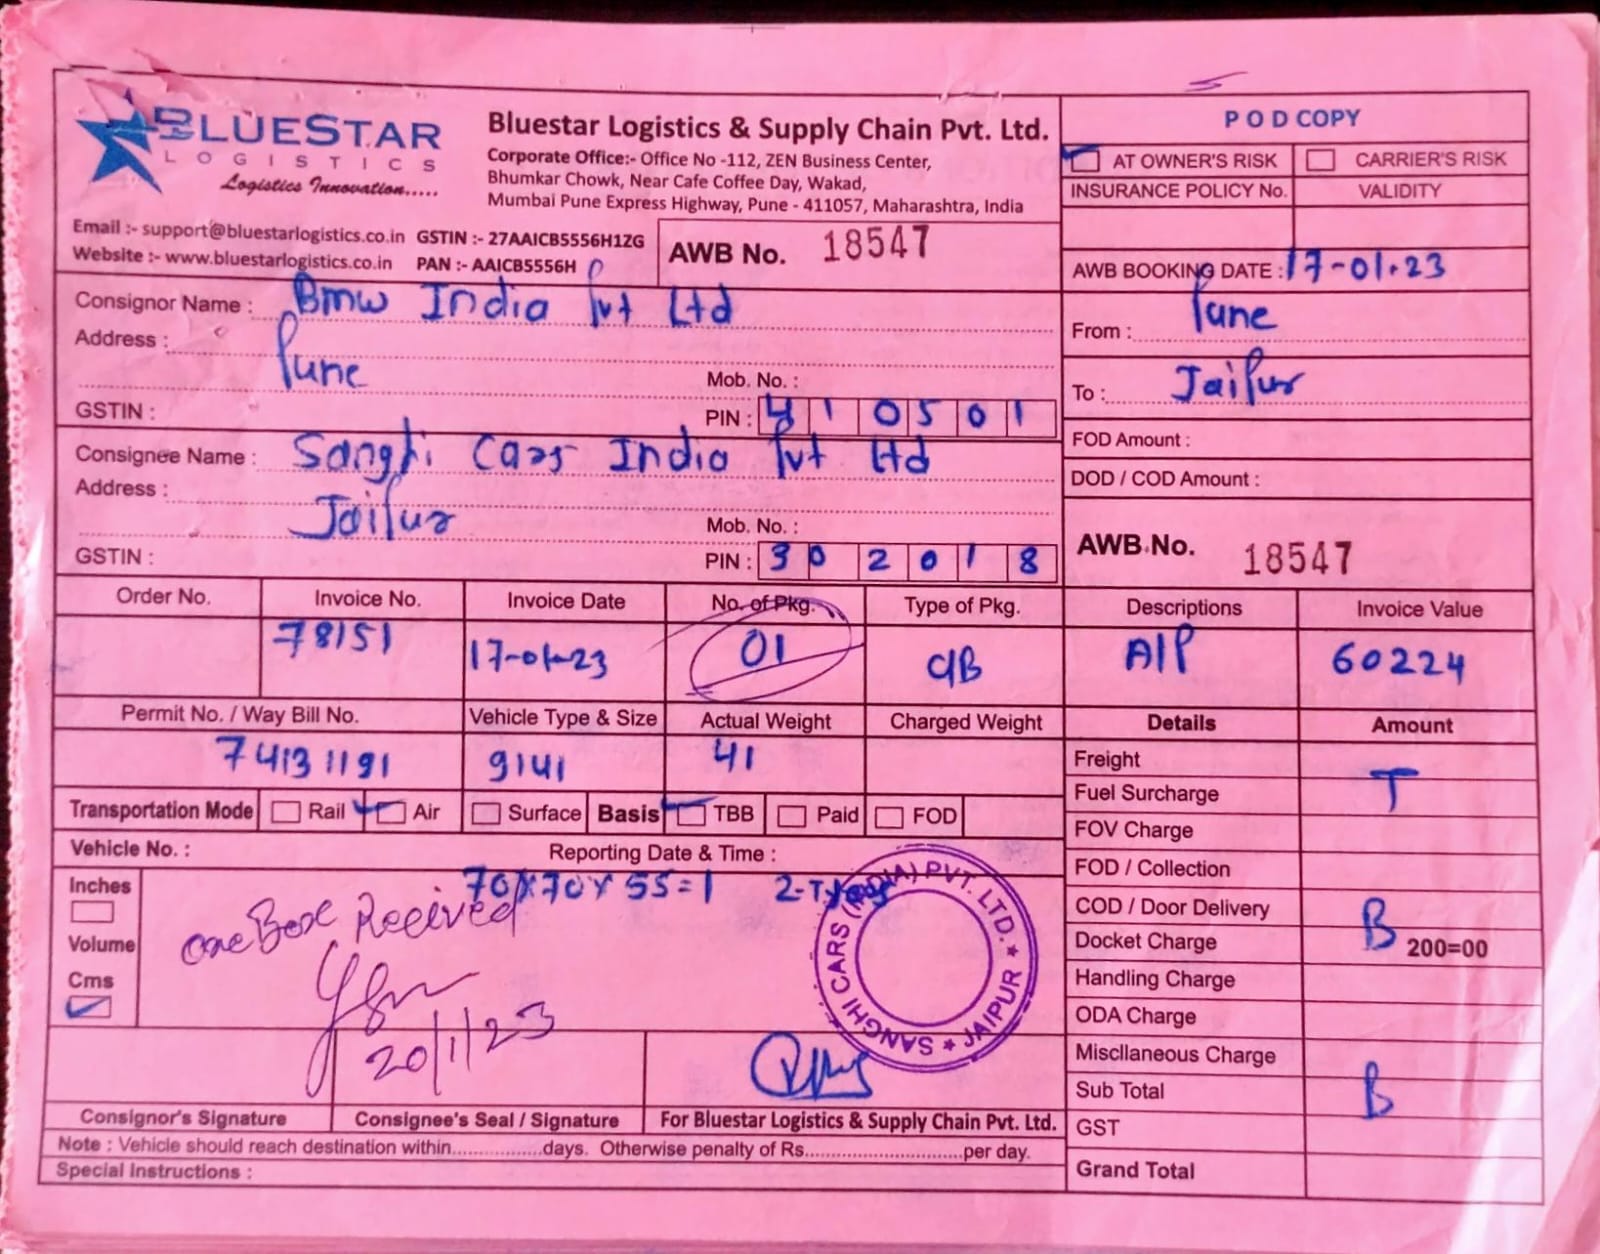 BLUESTAR
LOGISTICS
Logistics Innovation.....
Bluestar Logistics & Supply Chain Pvt. Ltd.
Corporate Office:- Office No -112, ZEN Business Center,
Bhumkar Chowk, Near Cafe Coffee Day, Wakad,
Mumbai Pune Express Highway, Pune - 411057, Maharashtra, India
Email :- support@bluestarlogistics.co.in GSTIN :- 27AAICB5556H1ZG
Website :- www.bluestarlogistics.co.in PAN :- AAICB5556H
AWB No. 18547
P O D COPY
AT OWNER'S RISK CARRIER'S RISK
INSURANCE POLICY No. VALIDITY
AWB BOOKING DATE : 17-01.23
From : Pune
To : Jaipur
FOD Amount :
DOD / COD Amount :
AWB No. 18547
Consignor Name : Bmw India Pvt Ltd
Address :
Pune Mob. No. :
GSTIN : PIN : 410501
Consignee Name : Sanghi Cars India Pvt Ltd
Address :
Jaipur Mob. No. :
GSTIN : PIN : 302018
Order No. Invoice No. Invoice Date No. of Pkg. Type of Pkg. Descriptions Invoice Value
78151 17-01-23 01 C/B A/P 60224
Permit No. / Way Bill No. Vehicle Type & Size Actual Weight Charged Weight Details Amount
74131191 9141 41
Transportation Mode Rail Air Surface Basis TBB Paid FOD
Vehicle No. : Reporting Date & Time :
Inches
Volume
Cms
70x70x55=1
one Box Received
20/1/23
SANGHI CARS (INDIA) PVT. LTD. * JAIPUR *
Freight
Fuel Surcharge T
FOV Charge
FOD / Collection
COD / Door Delivery
Docket Charge B 200=00
Handling Charge
ODA Charge
Miscllaneous Charge
Sub Total B
GST
Grand Total
Consignor's Signature Consignee's Seal / Signature For Bluestar Logistics & Supply Chain Pvt. Ltd.
Note : Vehicle should reach destination within.................days. Otherwise penalty of Rs.............................per day.
Special Instructions :